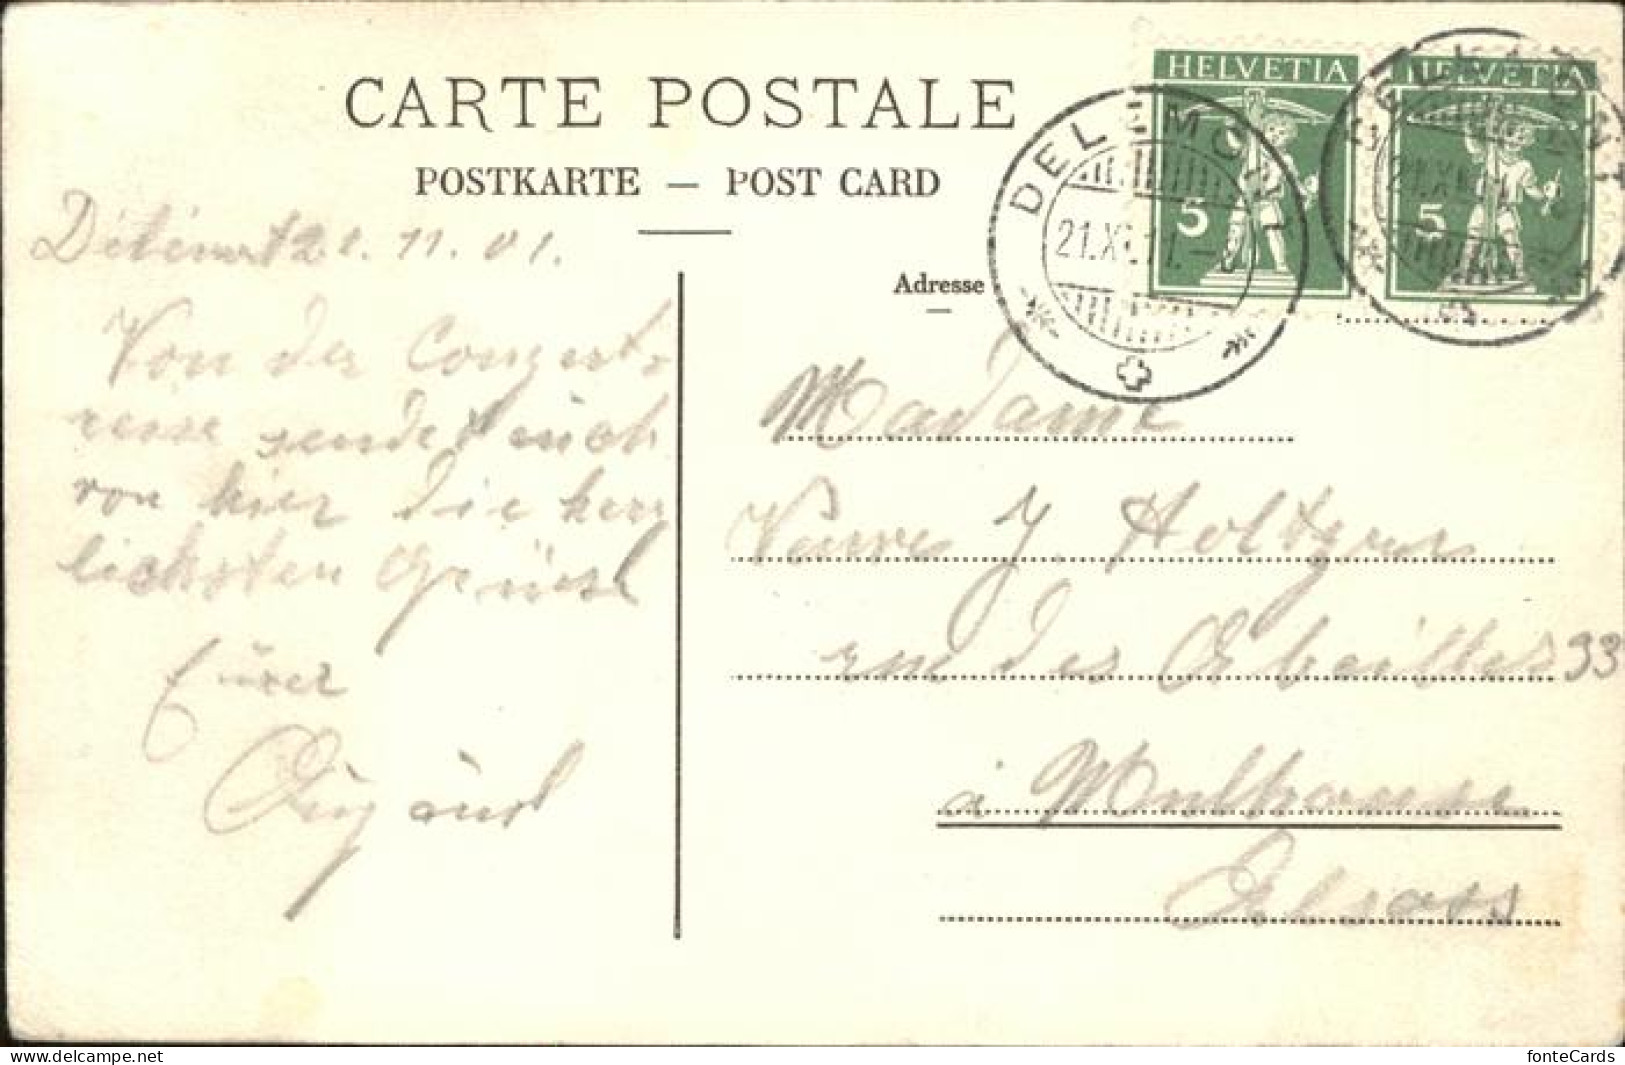 CARTE POSTALE
POSTKARTE — POST CARD
HELVETIA
5
HELVETIA
5
DELÉMONT
21.XI.11.
DELÉMONT
21.XI.11
21. 11. 01.
Von der Conzert-
reise sendet euch
von hier die herz
lichsten Grüsse
Eürer
Adresse
Madame
Veuve J. Holtzer
rue des Abeilles 93
à Mulhouse
Elsass
delcampe.net
fonteCards